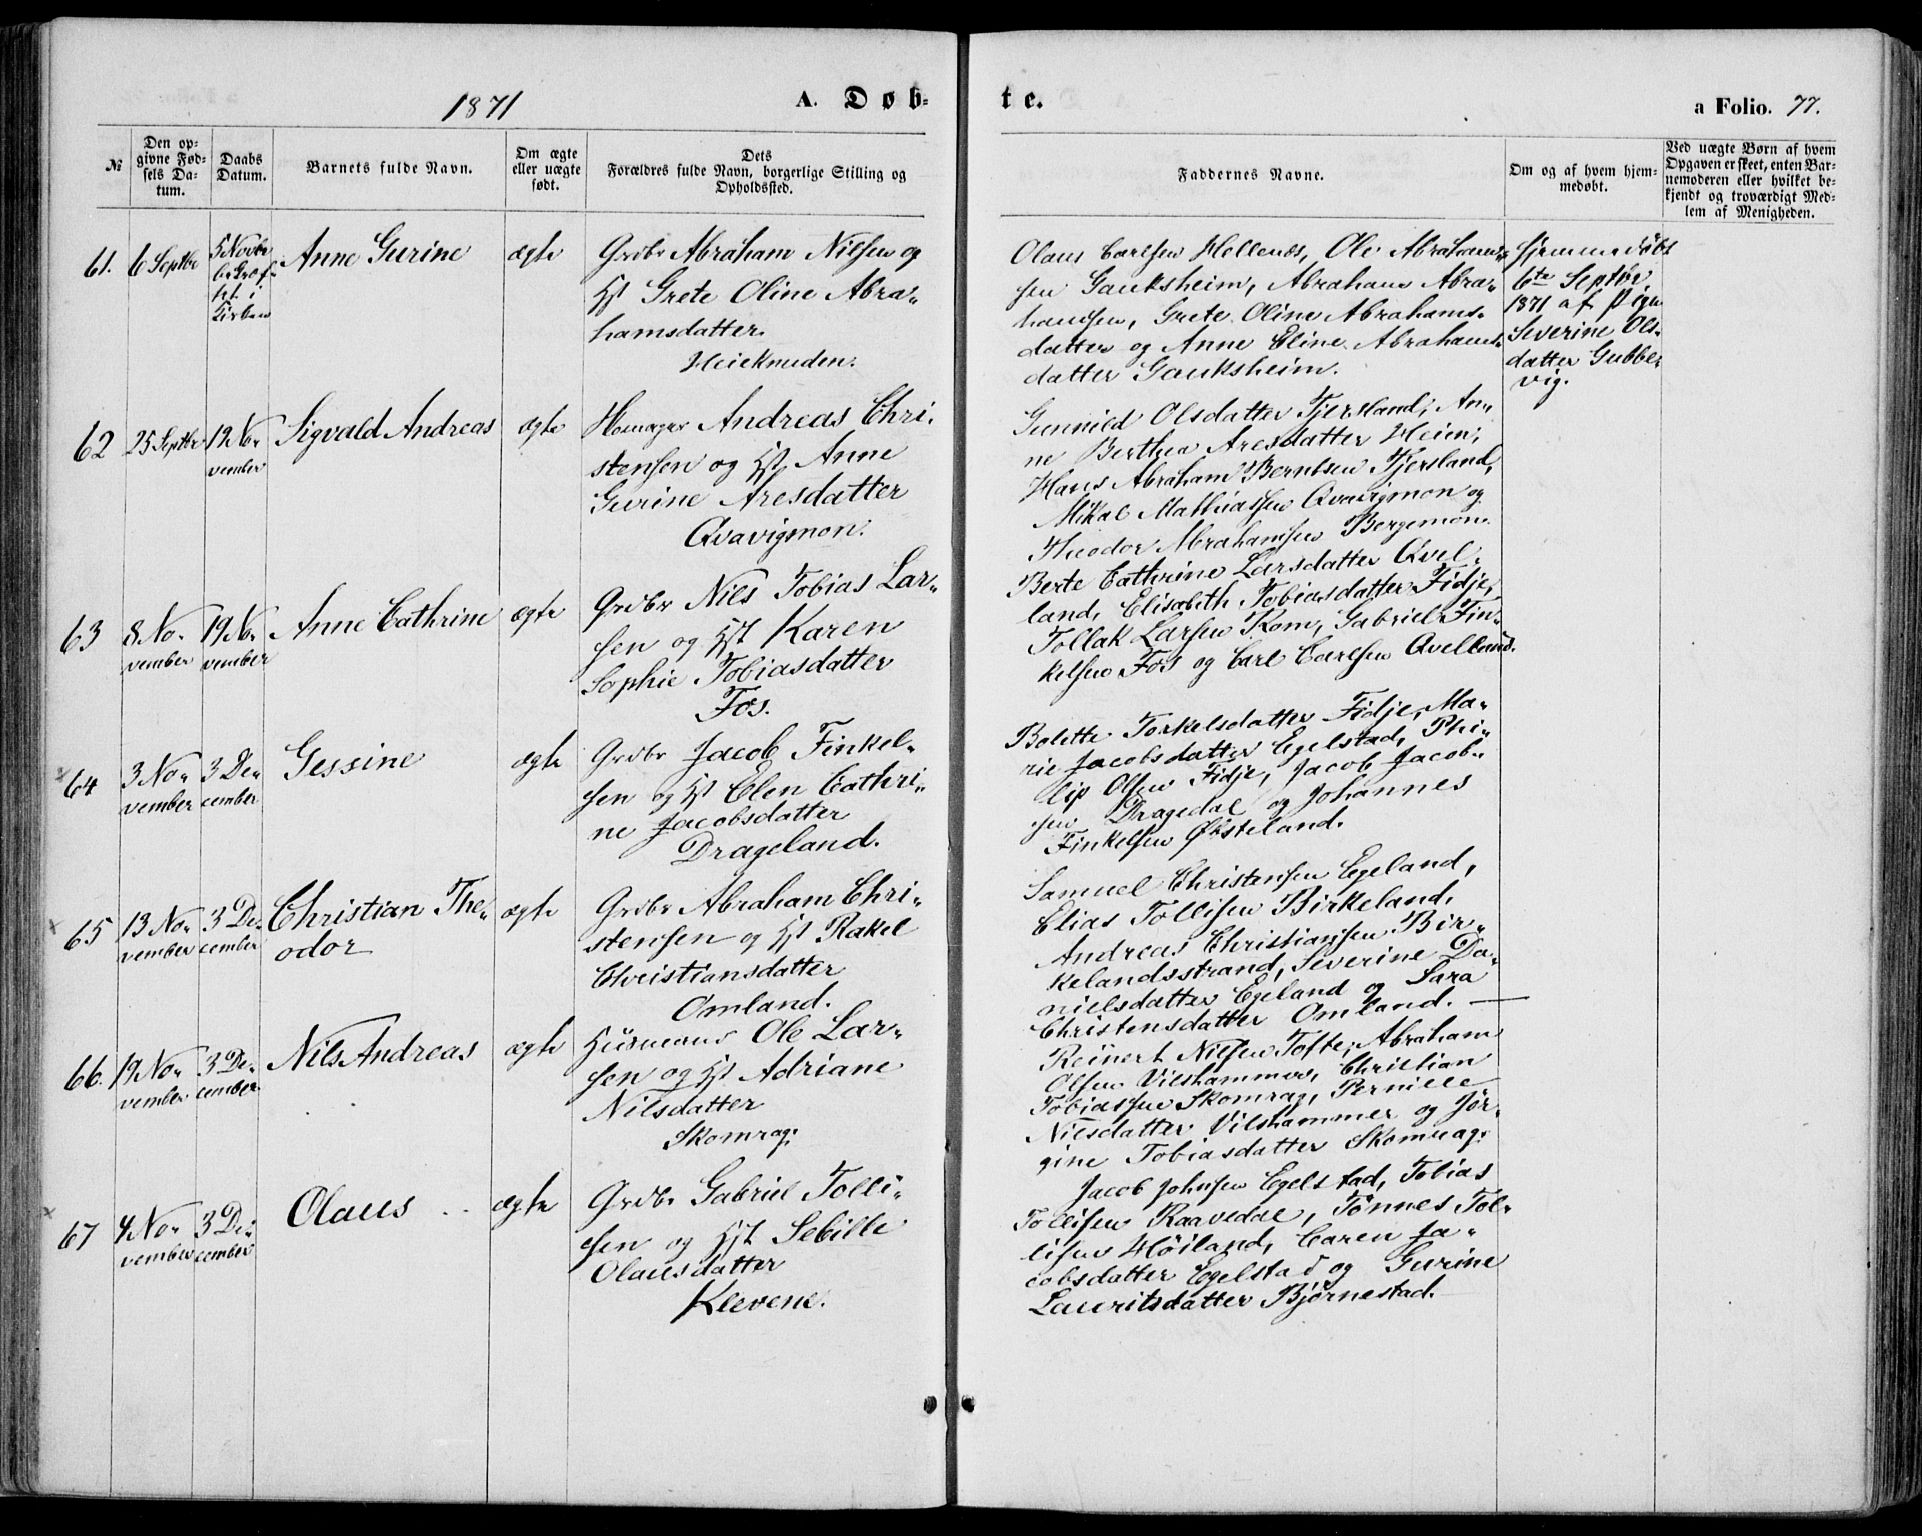 1871
A. Døb-
te.
a Folio. 77.
№
Den op-
givne Fød-
sels Da-
tum.
Daabs
Datum.
Barnets fulde Navn.
Om ægte
eller uægte
født.
Dets
Forældres fulde Navn, borgerlige Stilling og
Opholdssted.
Faddernes Navne.
Om og af hvem hjem-
medøbt.
Ved uægte Børn af hvem
Opgaven er skeet, enten Bar-
nemoderen eller hvilket be-
kjendt og troværdigt Med-
lem af Menigheden.
61.
6 Septbr
5 Novbr
bekræf-
tet i
Kirken
Anne Gurine
ægte
Grdbr Abraham Nilsen og
Hst Grete Oline Abra-
hamsdatter
Heieknuden.
Olaus Carlsen Hellenes, Ole Abraham-
sen Gauksheim, Abraham Abra-
hamsen, Grete Oline Abrahams-
datter og Anne Eline Abrahams-
datter Gauksheim.
Hjemmedøbt
6te Septbr
1871 af Pige
Severine Ols-
datter Gubbe-
vig.
62
25 Septbr
19 No-
vember
Sigvald Andreas
ægte
Andreas Chri-
stensen og Hst Anne
Gurine Aresdatter
Qvavigmon.
Gunnild Olsdatter Tjersland, An-
ne Berthea Aresdatter Heien,
Hans Abraham Berntsen Tjersland,
Mikal Mathiassen Qvavigmon og
Theodor Abrahamsen Bergemon.
63
8 No-
vember
19 No-
vember
Anne Cathrine
ægte
Grdbr Nils Tobias Lar-
sen og Hst Karen
Sophie Tobiasdatter
Fos.
Berte Cathrine Larsdatter Qvel-
land, Elisabeth Tobiasdatter Fidje,
Tollak Larsen Rom, Gabriel Fin-
kelsen Fos og Carl Carlsen Qvelland.
64
3 No-
vember
3 De-
cember
Gessine
ægte
Grdbr Jacob Finkel-
sen og Hst Elen Cathri-
ne Jacobsdatter
Drageland.
Bolette Torkelsdatter Fidje, Ma-
rie Jacobsdatter Egelstad, Phi-
lip Olsen Fidje, Jacob Jacob-
sen Dragedal og Johannes
Finkelsen Østeland.
65
13 No-
vember
3 De-
cember
Christian The-
odor
ægte
Grdbr Abraham Chri-
stensen og Hst Rakel
Christiansdatter
Omland.
Samuel Christensen Egeland,
Elias Tollisen Birkeland,
Andreas Christiansen Bir-
kelandsstrand, Severine Da-
nielsdatter Egeland og Sara
Christensdatter Omland. —
66.
19 No-
vember
3 De-
cember
Nils Andreas
ægte
Husmand Ole Lar-
sen og Hst Adriane
Nilsdatter
Skomrag.
Reinert Nilsen Tofte, Abraham
Olsen Vilshammer, Christian
Tobiassen Skomrag, Pernille
Nilsdatter Vilshammer og Jør-
gine Tobiasdatter Skomrag.
67
4 No-
vember
3 De-
cember
Olaus
ægte
Grdbr Gabriel Tolli-
sen og Hst Sebille
Olausdatter
Klevene.
Jacob Johnsen Egelstad, Tobias
Tollisen Raavedal, Tønnes Tol-
lisen Høiland, Caren Ja-
cobsdatter Egelstad og Gurine
Lauritsdatter Bjørnestad.